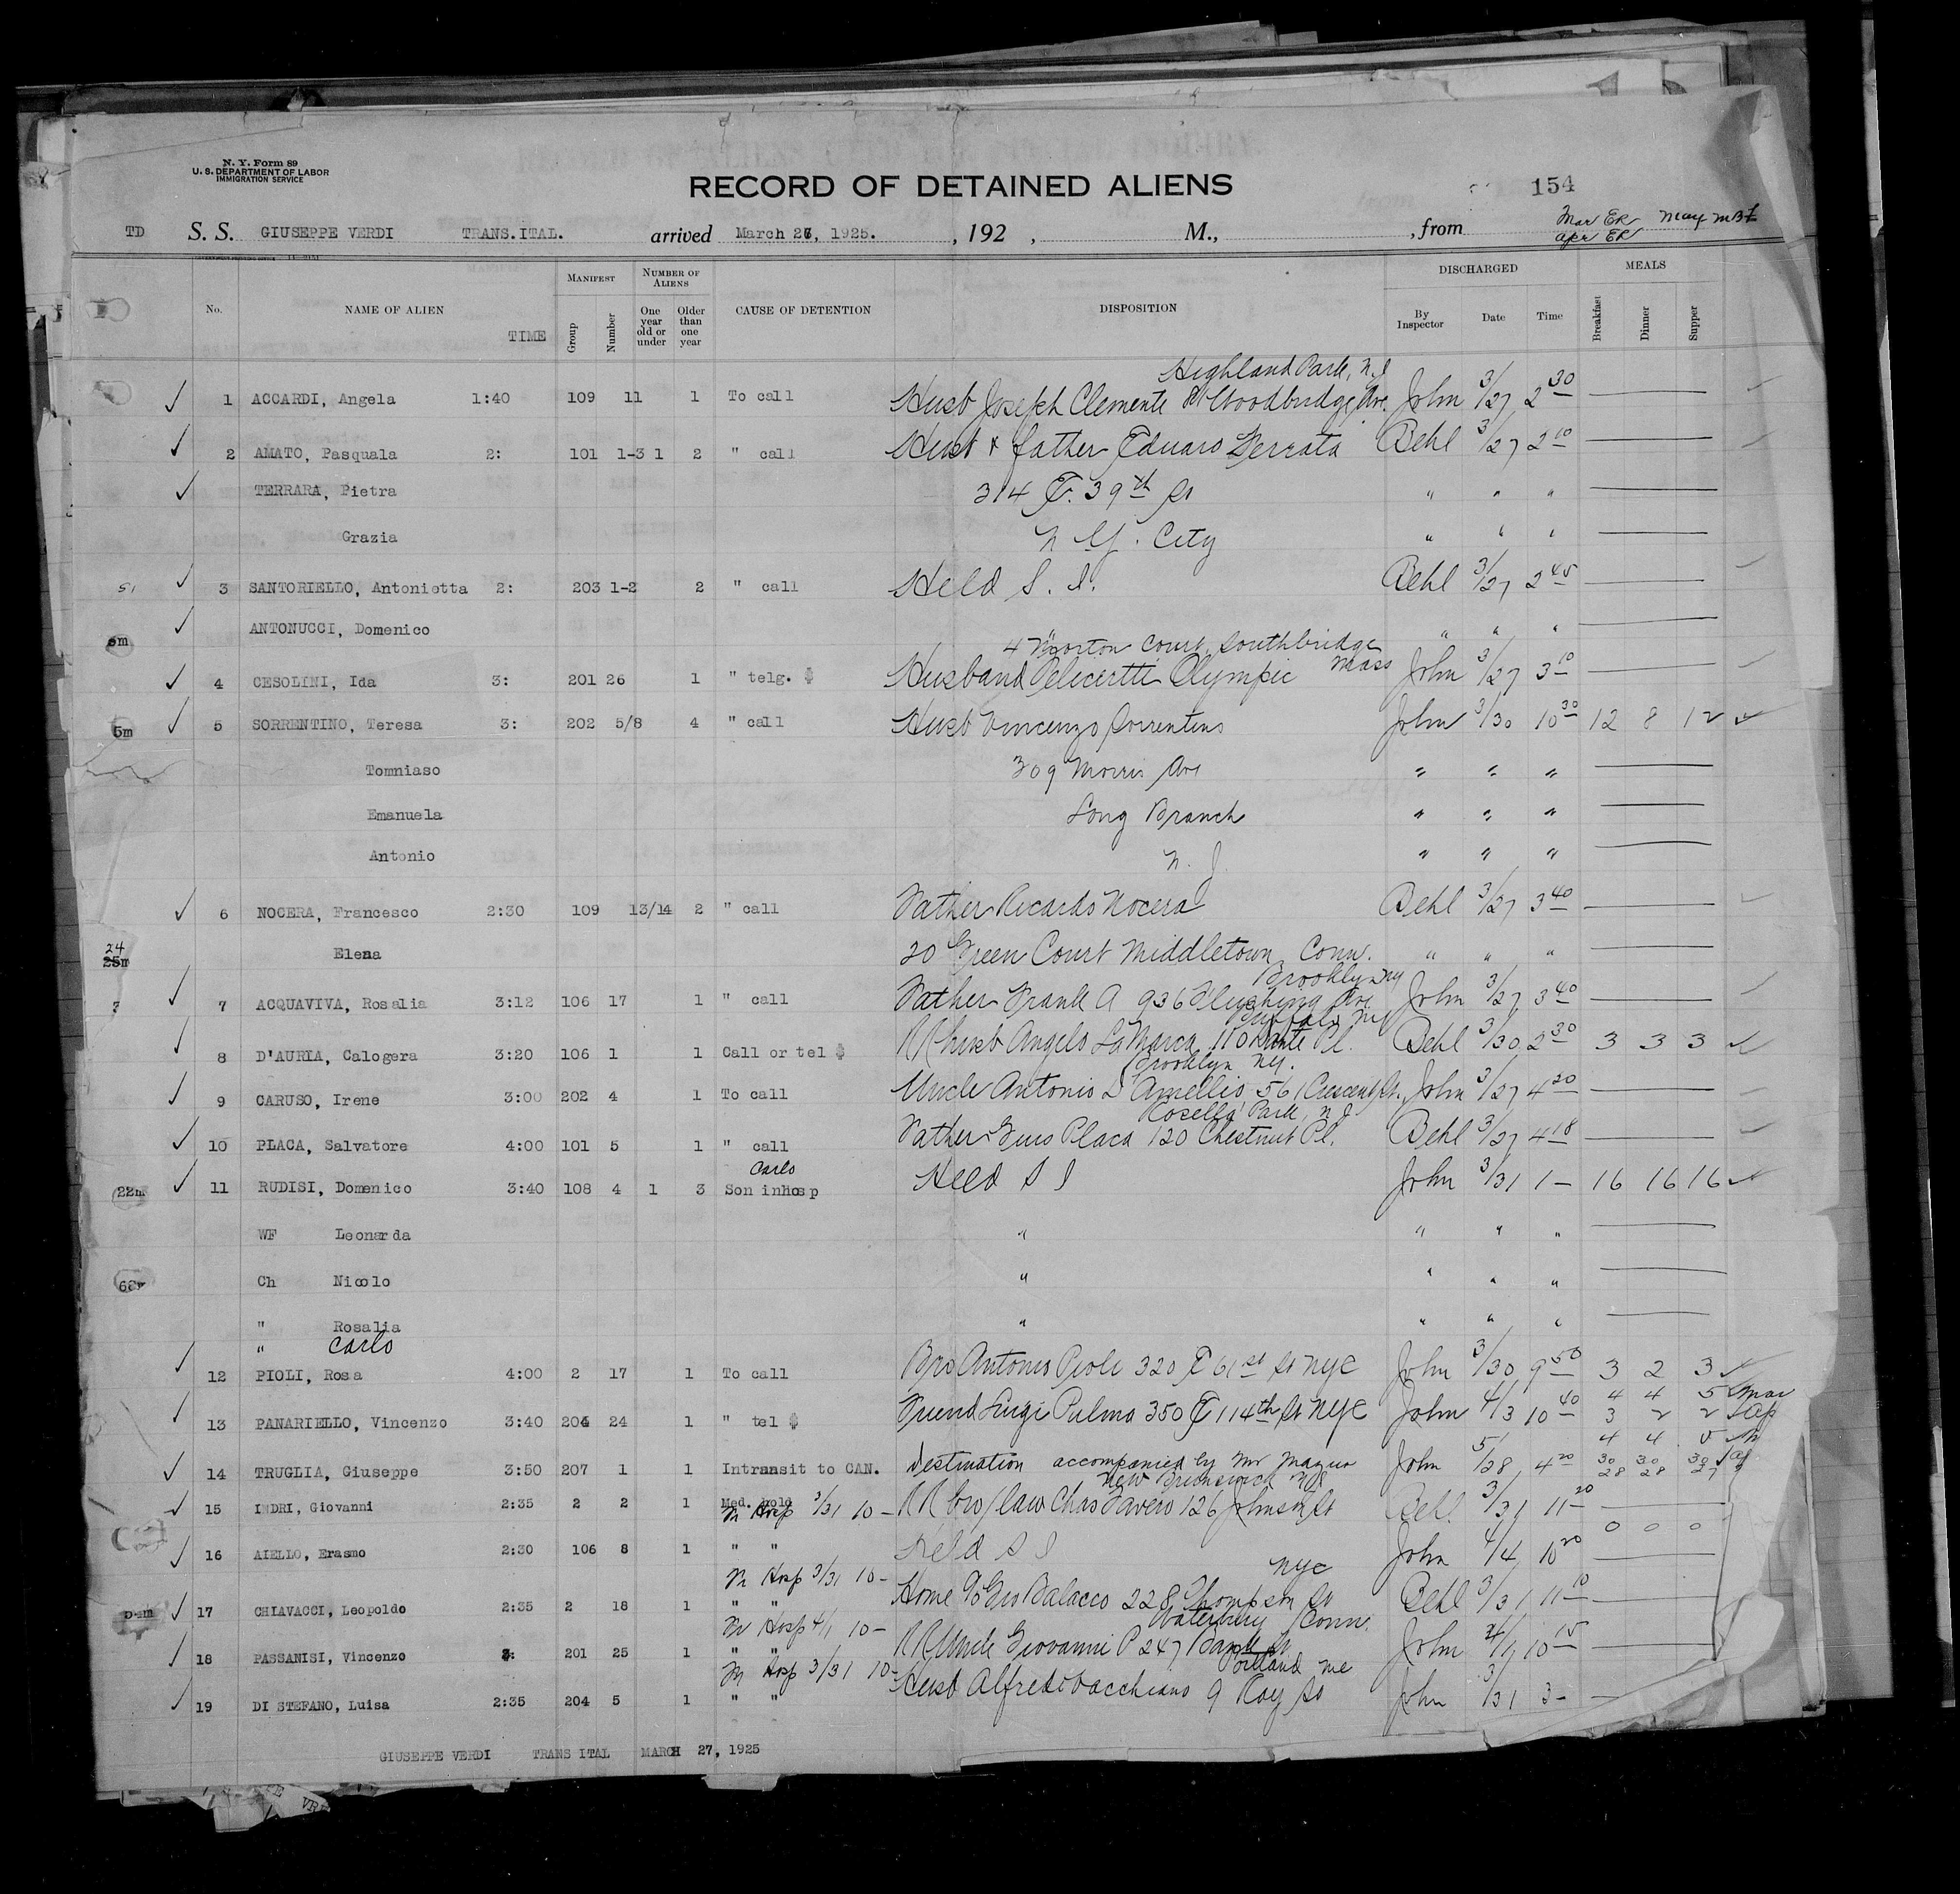 N. Y. Form 89
U. S. DEPARTMENT OF LABOR
IMMIGRATION SERVICE
RECORD OF DETAINED ALIENS
154
TD S. S. GIUSEPPE VERDI TRANS.ITAL. arrived March 27, 1925. , 192 , M., , from Mar ER May MBF
Apr ER
No. NAME OF ALIEN TIME MANIFEST Group Number NUMBER OF ALIENS One year old or under Older than one year CAUSE OF DETENTION DISPOSITION DISCHARGED By Inspector Date Time MEALS Breakfast Dinner Supper
Highland Park, N.J
1 ACCARDI, Angela 1:40 109 11 1 To call Husb Joseph Clemente Woodbridge Ave. John 3/27 2 30
2 AMATO, Pasquala 2: 101 1-3 1 2 " call Husb & father Eduaro Ferrata Behl 3/27 2 10
TERRARA, Pietra 314 E. 39th St " " "
Grazia N.Y. City " " "
51 3 SANTORIELLO, Antonietta 2: 203 1-2 2 " call Held S. I. Behl 3/27 2 45
ANTONUCCI, Domenico " " " "
4 Morton Court, Southbridge Mass
4 CESOLINI, Ida 3: 201 26 1 " telg. $ Husband Olympic John 3/27 3 10
5m 5 SORRENTINO, Teresa 3: 202 5/8 4 " call Husb Vincenzo Sorrentino John 3/30 10 30 12 8 12
Tomniaso 309 Morris Ave " " "
Emanuela Long Branch " " "
Antonio N.J. " " "
6 NOCERA, Francesco 2:30 109 13/14 2 " call Father Ricardo Nocera Behl 3/27 3 40
24
25m Elena 20 Green Court Middletown, Conn. " " "
Brooklyn NY
7 ACQUAVIVA, Rosalia 3:12 106 17 1 " call Father Frank A 936 Flushing Ave. John 3/27 3 40
Buffalo NY
8 D'AURIA, Calogera 3:20 106 1 1 Call or tel $ RR husb Angelo La Marca, 110 Dante Pl. Behl 3/30 2 30 3 3 3
Brooklyn NY.
9 CARUSO, Irene 3:00 202 4 1 To call Uncle Antonio D'Amellio, 561 Crescent St. John 3/27 4 20
Rosella Park, N J
10 PLACA, Salvatore 4:00 101 5 1 " call Father Gius Placa 120 Chestnut Pl. Behl 3/27 4 18
Carlo
22m 11 RUDISI, Domenico 3:40 108 4 1 3 Son inhosp Held S I John 3/31 1 – 16 16 16
WF Leonarda " " " "
Ch Nicolo " " " "
" Rosalia " " " "
" Carlo
12 PIOLI, Rosa 4:00 2 17 1 To call Bro Antonio Pioli 320 E 61st St NYC John 3/30 9 50 3 2 3
4 4 5 Mar
13 PANARIELLO, Vincenzo 3:40 204 24 1 " tel $ Friend Luigi Pulma 350 E 114th St NYC John 4/3 10 40 3 2 2 Ap
4 4 5 M
14 TRUGLIA, Giuseppe 3:50 207 1 1 Intransit to CAN. Destination accompanied by Mr John 5/28 4 20 30 30 30 Ap
28 28 27
New Brunswick NJ
15 INDRI, Giovanni 2:35 2 2 1 Med. hold RR bro/law Chas Favero 126 Johnson St Behl 3/31 11 20
M Hosp 3/31 10 –
0 0 0
16 AIELLO, Erasmo 2:30 106 8 1 " " Held S I John 4/4 10 20
M Hosp 3/31 10 – NYC
17 CHIAVACCI, Leopoldo 2:35 2 18 1 " " Home % Geo Balacco 228 Thompson St Behl 3/31 11 10
M Hosp 4/1 10 – Waterbury Conn.
18 PASSANISI, Vincenzo 201 25 1 " " RR Uncle Giovanni P 247 Bank St John 4/1 10 15
M Hosp 3/31 10 – Portland Me
19 DI STEFANO, Luisa 2:35 204 5 1 " " Husb Alfredo Vacchiano 9 Roy St John 3/31 3 –
GIUSEPPE VERDI TRANS ITAL MARCH 27, 1925